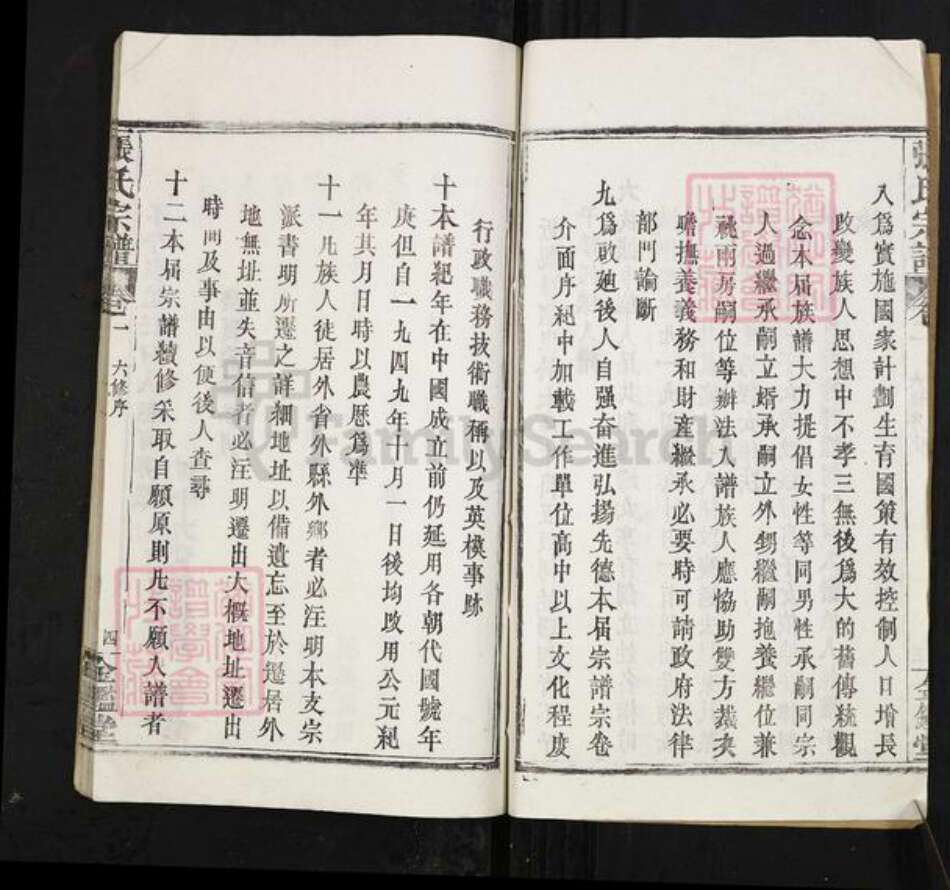 八爲實施國家計劃生育國策有效控制人口增長
改變族人思想中不孝三無後爲大的舊傳統觀
念本屆族譜大力提倡女性等同男性承嗣同宗
人過繼承嗣立婿承嗣立外甥繼嗣抱養繼位兼
祧兩房嗣位等辦法入譜族人應恊助雙方裁决
瞻撫養義務和財産繼承必要時可請政府法律
部門論斷
九爲啟廸後人自强奮進弘揚先德本届宗譜宗卷
介面序紀中加載工作單位高中以上文化程度
行政職務技術職稱以及英模事跡
十本譜紀年在中國成立前仍延用各朝代國號年
庚但自一九四九年十月一日後均改用公元紀
年其月日時以農歷爲準
十一凡族人徒居外省外縣外鄉者必注明本支宗
派書明所遷之詳細地址以備遺忘至於遷居外
地無址並失音信者必注明遷出大概地址遷出
時間及事由以便後人查尋
十二本届宗譜續修采取自願原則凡不願入譜者
張氏宗譜 卷一 六修序 四一 金鑑堂
張氏宗譜 卷
FamilySearch